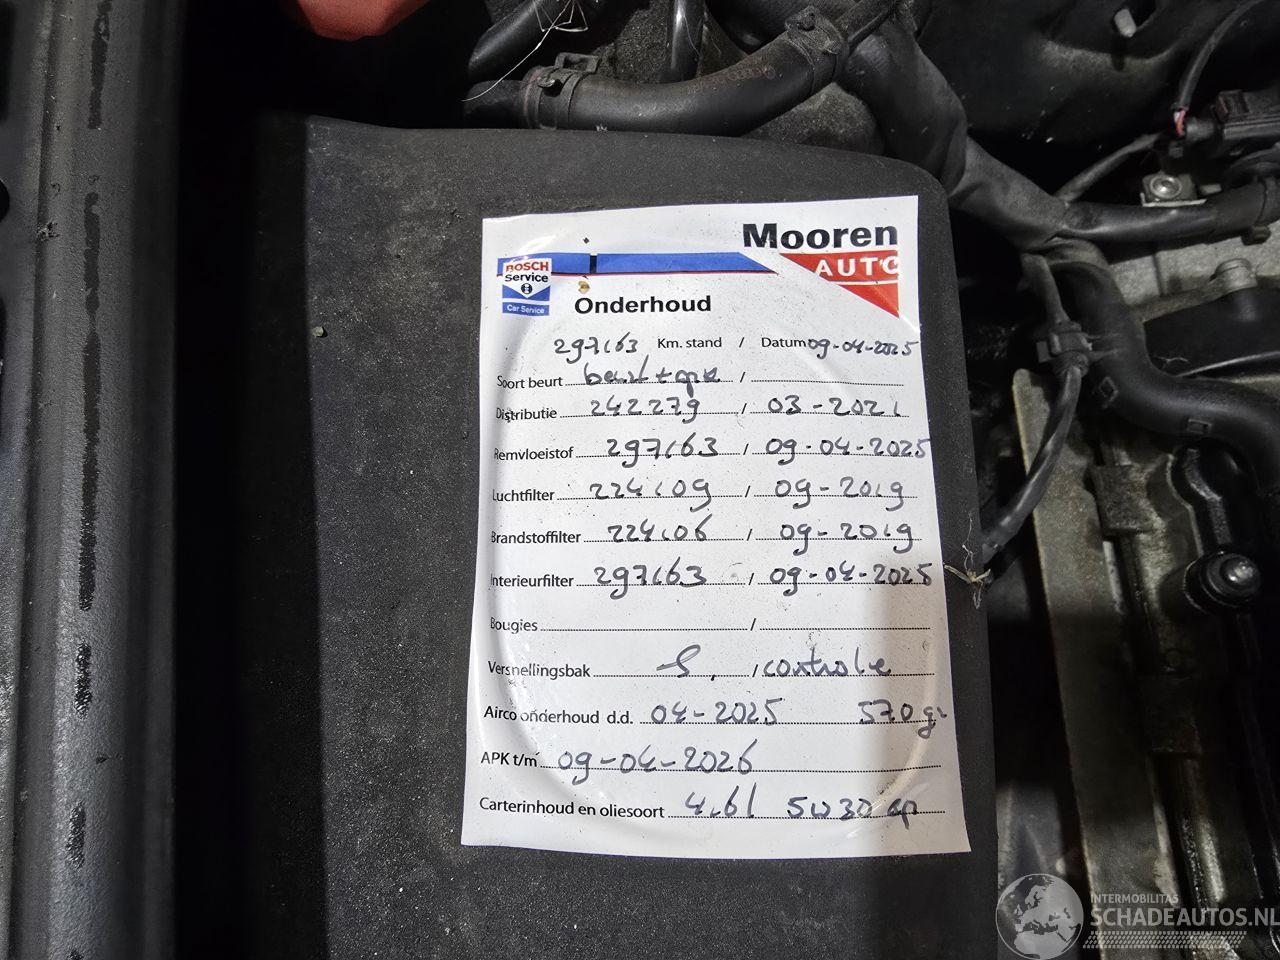 Mooren
AUTO
BOSCH
Service
Car Service
Onderhoud
297163 Km. stand / Datum 09-04-2025
Soort beurt beurt + apk /
Distributie 242279 / 03-2021
Remvloeistof 297163 / 09-04-2025
Luchtfilter 224109 / 09-2019
Brandstoffilter 224106 / 09-2019
Interieurfilter 297163 / 09-04-2025
Bougies /
Versnellingsbak / controle
Airco onderhoud d.d. 04-2025 570 gr
APK t/m 09-04-2026
Carterinhoud en oliesoort 4.6l 5w30
INTERMOBILITAS
SCHADEAUTOS.NL